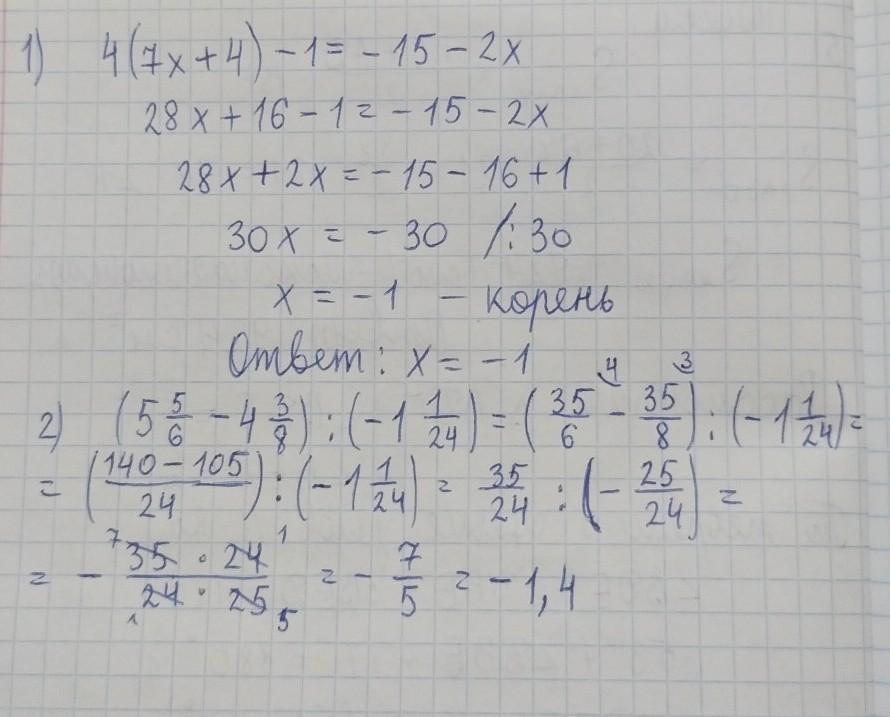 1) 4(7x+4)-1=-15-2x
28x+16-1=-15-2x
28x+2x=-15-16+1
30x=-30 /:30
x=-1 - корень
Ответ: x=-1
2) (5 5/6 - 4 3/8) : (-1 1/24) = (35/6 ⁴ - 35/8 ³) : (-1 1/24) =
= ((140-105)/24) : (-1 1/24) = 35/24 : (-25/24) =
= - (⁷35 · 24 ¹)/(₁24 · 25 ₅) = - 7/5 = -1,4